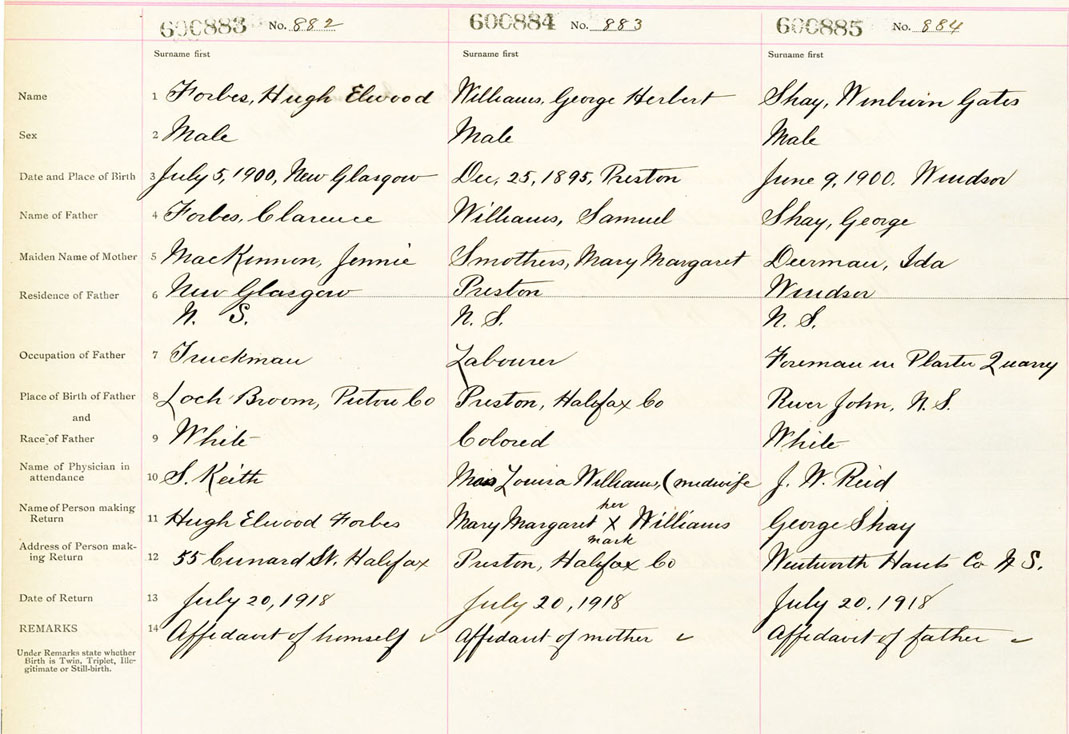 600883 No. 882 600884 No. 883 600885 No. 884
Surname first Surname first Surname first
Name 1 Forbes, Hugh Elwood Williams, George Herbert Shay, Winburn Gates
Sex 2 Male Male Male
Date and Place of Birth 3 July 5, 1900, New Glasgow Dec. 25, 1895, Preston June 9, 1900. Windsor
Name of Father 4 Forbes, Clarence Williams, Samuel Shay, George
Maiden Name of Mother 5 MacKinnon, Jennie Smothers, Mary Margaret Deerman, Ida
Residence of Father 6 New Glasgow Preston Windsor
N. S. N. S. N. S.
Occupation of Father 7 Truckman Labourer Foreman in Plaster Quarry
Place of Birth of Father 8 Loch Broom, Pictou Co Preston, Halifax Co River John, N. S.
and
Race of Father 9 White Colored White
Name of Physician in
attendance 10 S. Keith Louisa Williams, (midwife J. W. Reid
her
Name of Person making
Return 11 Hugh Elwood Forbes Mary Margaret X Williams George Shay
mark
Address of Person mak-
ing Return 12 55 Cunard St. Halifax Preston, Halifax Co Wentworth Hants Co N S.
Date of Return 13 July 20, 1918 July 20, 1918 July 20, 1918
REMARKS 14 Affidavit of himself ✓ Affidavit of mother ✓ Affidavit of father ✓
Under Remarks state whether
Birth is Twin, Triplet, Ille-
gitimate or Still-birth.